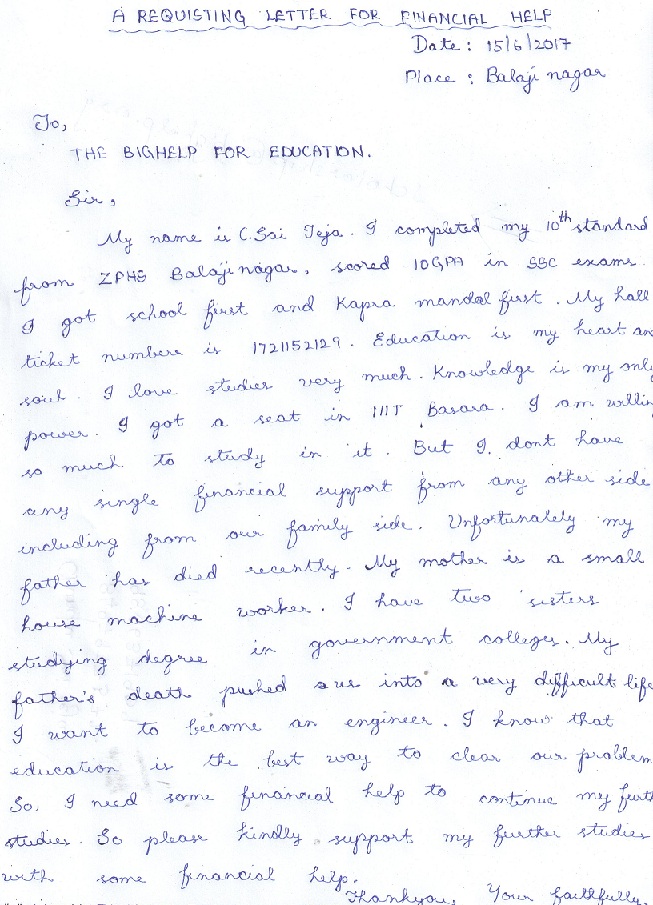 A REQUISTING LETTER FOR FINANCIAL HELP
Date : 15/6/2017
Place : Balaji nagar
To,
THE BIGHELP FOR EDUCATION.
Sir,
My name is C.Sai Teja. I completed my 10th standard
from ZPHS Balaji nagar, scored 10GPA in SSC exams.
I got school first and Kapra mandal first. My hall
ticket numbere is 1721152129. Education is my heart an
soul. I love studies very much. Knowledge is my only
power. I got a seat in IIIT Basara. I am willin
so much to study in it. But I dont have
any single financial support from any other side
including from our family side. Unfortunately my
father has died recently. My mother is a small
house machine worker. I have two sisters
studying degree in government colleges. My
father's death pushed us into a very difficult life
I want to become an engineer. I know that
education is the best way to clear our problem
So, I need some financial help to continue my furth
studies. So please kindly support my further studies
with some financial help.
Thankyou, Your faithfully,